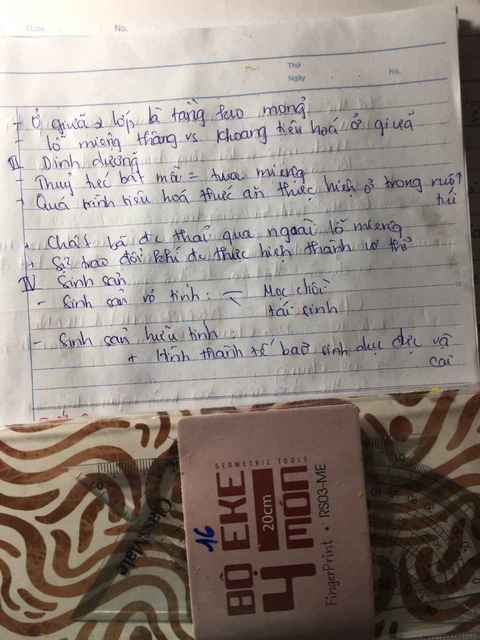 Date No.
Thứ
Ngày No.
- Ở giữa 2 lớp là tầng keo mỏng
- lỗ miệng thông vs khoang tiêu hoá ở giữa
III Dinh dưỡng
- Thuỷ tức bắt mồi = tua miệng
- Quá trình tiêu hoá thức ăn thực hiện ở trong ruột
túi
+ Chất bã đc thải qua ngoài lỗ miệng
+ Sự trao đổi khí đc thực hiện thành cơ thể
IV Sinh sản
- Sinh sản vô tính: - Mọc chồi
- tái sinh
- Sinh sản hữu tính
+ Hình thành tế bào sinh dục đực và
cái
GEOMETRIC TOOLS
BỘ EKE
20cm
4 MÓN
FingerPrint • RS03-ME
16